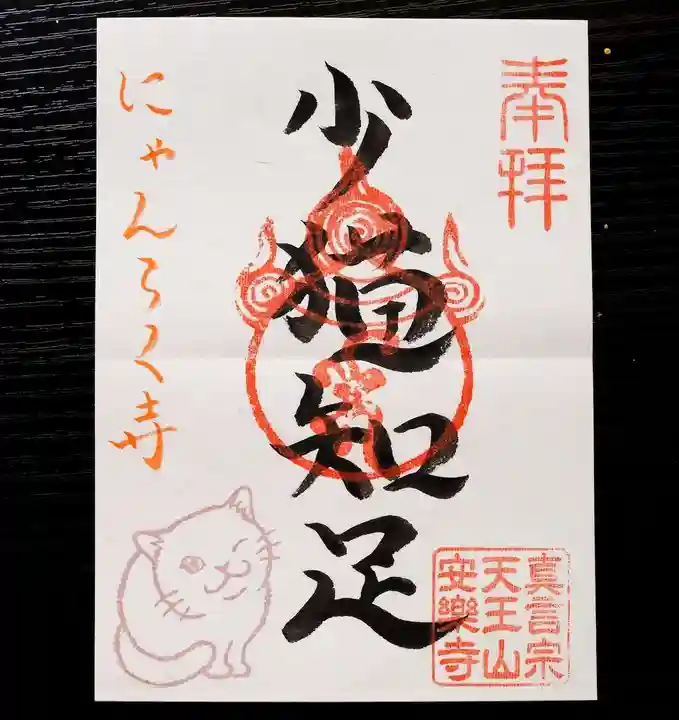 奉拝
少猫知足
にゃんらく寺
真言宗
天王山
安樂寺